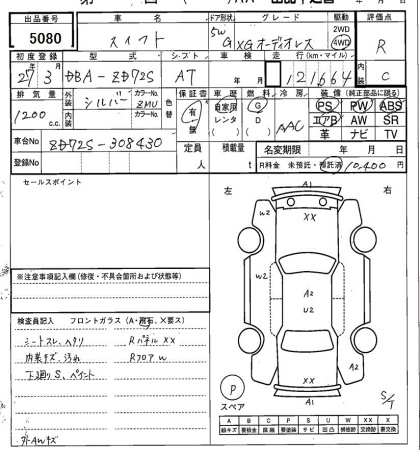 出品番号 車名 ドア形状 グレード 駆動 評価点
5080 スイフト 5W G XGオーディオレス 2WD 4WD R
初度登録 型式 シフト 車検 走行(km・マイル) 内装
27年 3月 DBA-ZD72S AT 年 月 121,664 C
排気量 外装色 カラーNo. 内装色 カラーNo. 色替 保証書 車歴 燃料 冷房 装備(純正部品に限る)
1200 c.c. シルバー ZMU 有 無 自家用 レンタ G D AAC PS PW ABS
エアB AW SR
革 ナビ TV
車台No ZD72S-308430 定員 人 積載量 t 名変期限 年 月 日
登録No R料金 未預託・預託済 10,400円
セールスポイント
左 右
A1
XX
W2
W2
A2
U2
W2
A2
XX
A1
※注意事項記入欄(修復・不具合箇所および状態等)
検査員記入 フロントガラス(A・飛石・X要ス)
シートスレ、ヘタリ RパネルXX
内装キズ、汚れ RフロアW
下廻りS、ペイント
外AWキズ
P
スペア
S/T
A B C P S U W X XX
線キズ 要板金 腐蝕 要塗装 サビ 凹凸 補修跡 交換跡 要交換